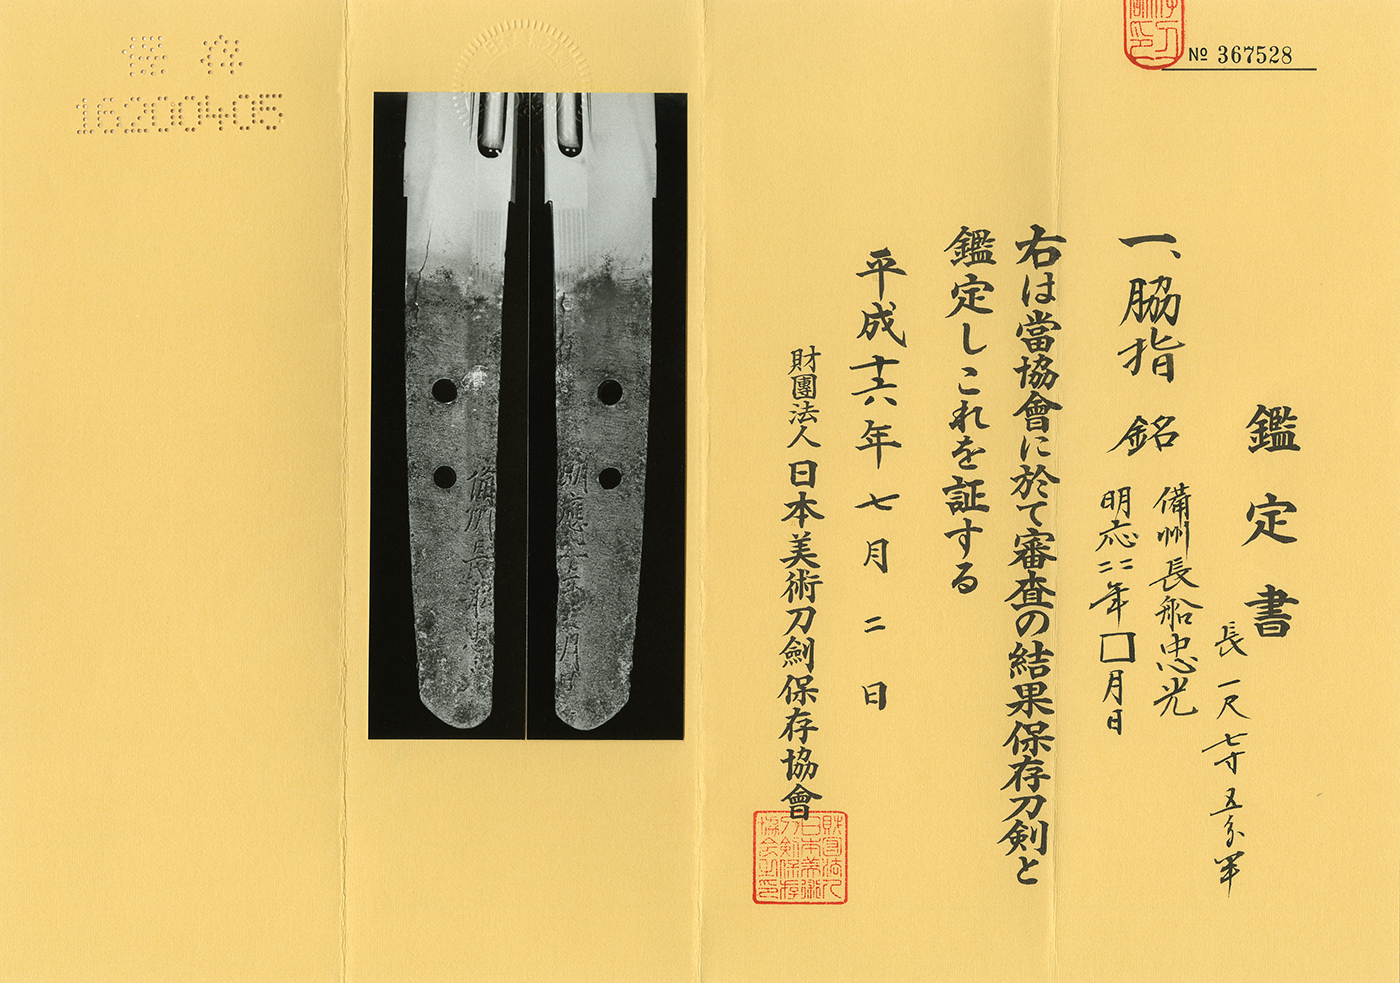 № 367528
鑑定書
長 一尺七寸五分半
一、脇指 銘
備州長船忠光
明応二二年□月日
右は當協會に於て審査の結果保存刀剣と
鑑定しこれを証する
平成十六年七月二日
財團法人日本美術刀劍保存協會
財団法人
日本美術
刀剣保存
協会之印
備州長船忠
保存
16200405